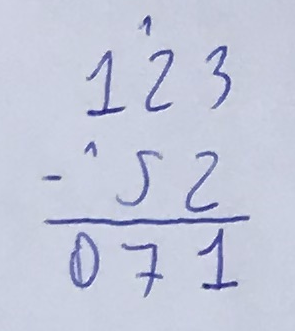 1
123
- 1 52
071